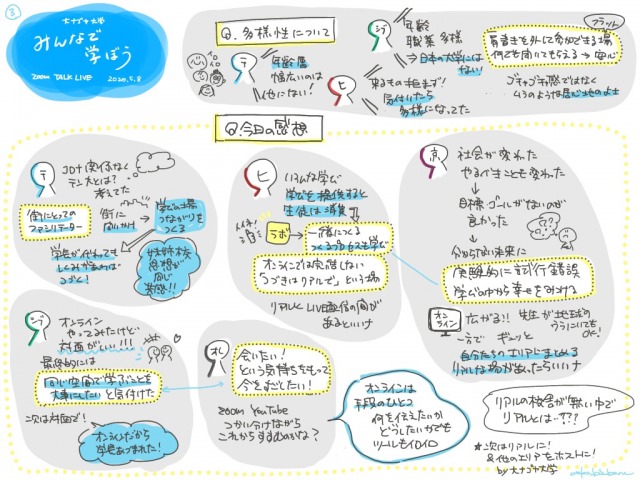 ③
大ナゴヤ大学
みんなで
学ぼう
ZOOM TALK LIVE 2020.5.8
Q.多様性について
テ
年齢層
幅広いのは
他にない!
ジ
年齢
職業 多様
→日本の大学には
ない!
ヒ
来るもの拒まず!
気付いたら
多様になってた
フラット
肩書きを外して参加できる場
何でも聞いてもらえる→安心
ゴチャゴチャ感ではなく
Q.今日の感想
テ
コロナ関係なく
考えてた
街にとっての
ファシリテーター
街に
問いかけ
学びの土場
つながりを
つくる
学長が代わっても
しくみがあれば
つづく!
姉妹校
思想が
同じ
ヒ
いろんな学び
学びを提供すると
生徒は消費
ラボ
一緒につくる
つくるプロセスも学び
オンラインでは完結しない
つづきはリアルで、という場
リアルとLIVE配信の間が
あるといいナ
京
社会が変わった
やるべきことも変わった
目標、ゴールがないのが
良かった
分からない未来に
実験的に試行錯誤
学びの中から幸せをみつける
オンライン
広がる!! 先生が地球の
うらにいても
OK!
一方で ギュッと
自分たちのエリアにまとめる
リアルな場があったらいいナ
ジ
オンライン
やってみたけど
対面がいい!!!
最終的には
同じ空間で学ぶことを
大事にしたい と気付けた
次は対面で!
オンラインだから
学長あつまれた!
オレ
会いたい!
という気持ちをもって
今をすごしたい!
ZOOM YouTube
つかい分けながら
これからすすめるかな?
オンラインは
手段のひとつ
何を伝えたいか
どうしたいかでも
ツールもイロイロ
リアルの校舎が無い中で
リアルとは・・???
★次はリアルに!
&他のエリアをホストに!
by 大ナゴヤ大学